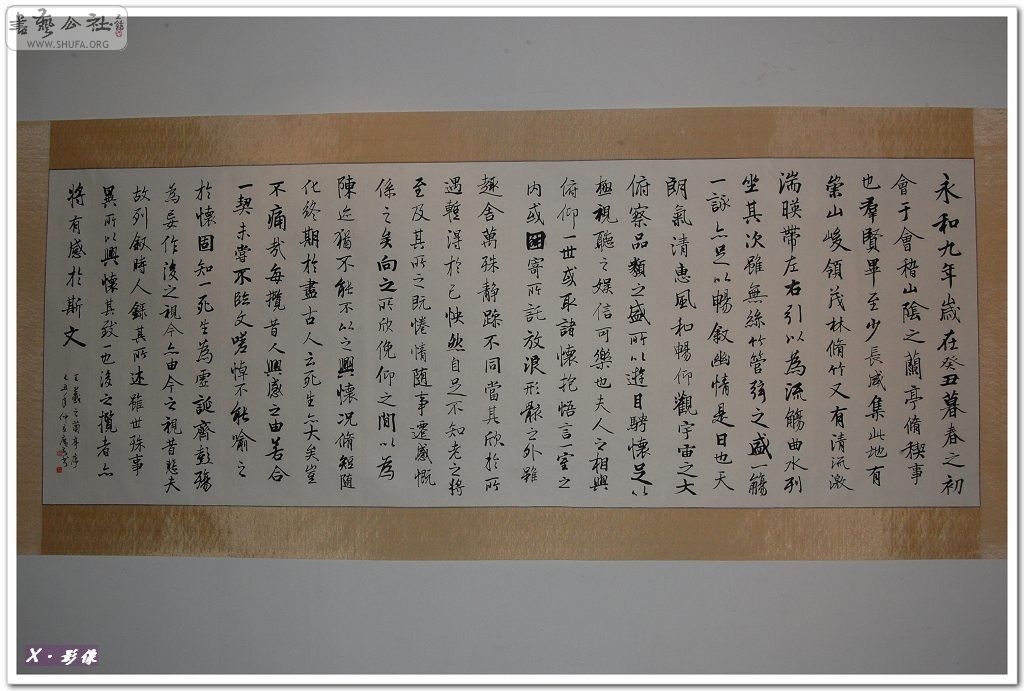 書藝公社
WWW.SHUFA.ORG
永和九年歲在癸丑暮春之初
會于會稽山陰之蘭亭脩稧事
也羣賢畢至少長咸集此地有
崇山峻領茂林脩竹又有清流激
湍暎帶左右引以為流觴曲水列
坐其次雖無絲竹管弦之盛一觴
一詠亦足以暢敘幽情是日也天
朗氣清惠風和暢仰觀宇宙之大
俯察品類之盛所以遊目騁懷足以
極視聽之娛信可樂也夫人之相與
俯仰一世或取諸懷抱悟言一室之
内或因寄所託放浪形骸之外雖
趣舍萬殊静躁不同當其欣於所
遇暫得於己怏然自足不知老之將
至及其所之既惓情隨事遷感慨
係之矣向之所欣俛仰之間以為
陳迹猶不能不以之興懷况脩短隨
化終期於盡古人云死生亦大矣豈
不痛哉每攬昔人興感之由若合
一契未嘗不臨文嗟悼不能喻之
於懷固知一死生為虛誕齊彭殤
為妄作後之視今亦由今之視昔悲夫
故列敘時人錄其所述雖世殊事
異所以興懷其致一也後之攬者亦
將有感於斯文
王羲之蘭亭序
X·影像